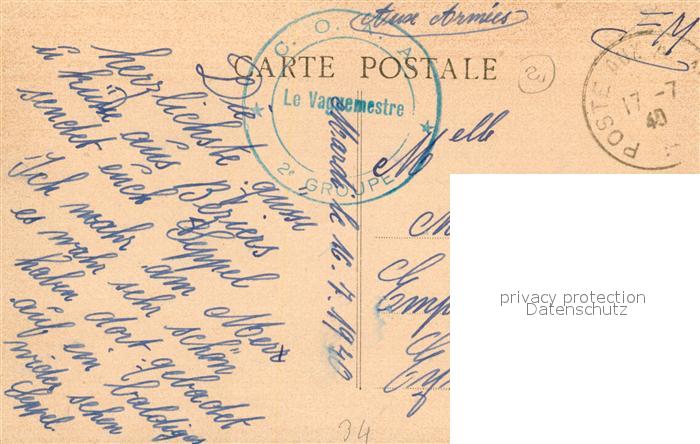 Aux Armées
F.M
CARTE POSTALE
C. O. A. A
Le Vaguemestre
2e GROUPE
POSTE AUX
17-7
40
Die
herzlichste grüße
u küße aus Béziers
sendet euch Seppel
Ich wahr am Meer
es wahr sehr schön
haben dort gebadet
auf ein baldiges
wider sehen
Seppel
Mardi le 16.7.1940
Melle
M
Emp
34
privacy protection
Datenschutz